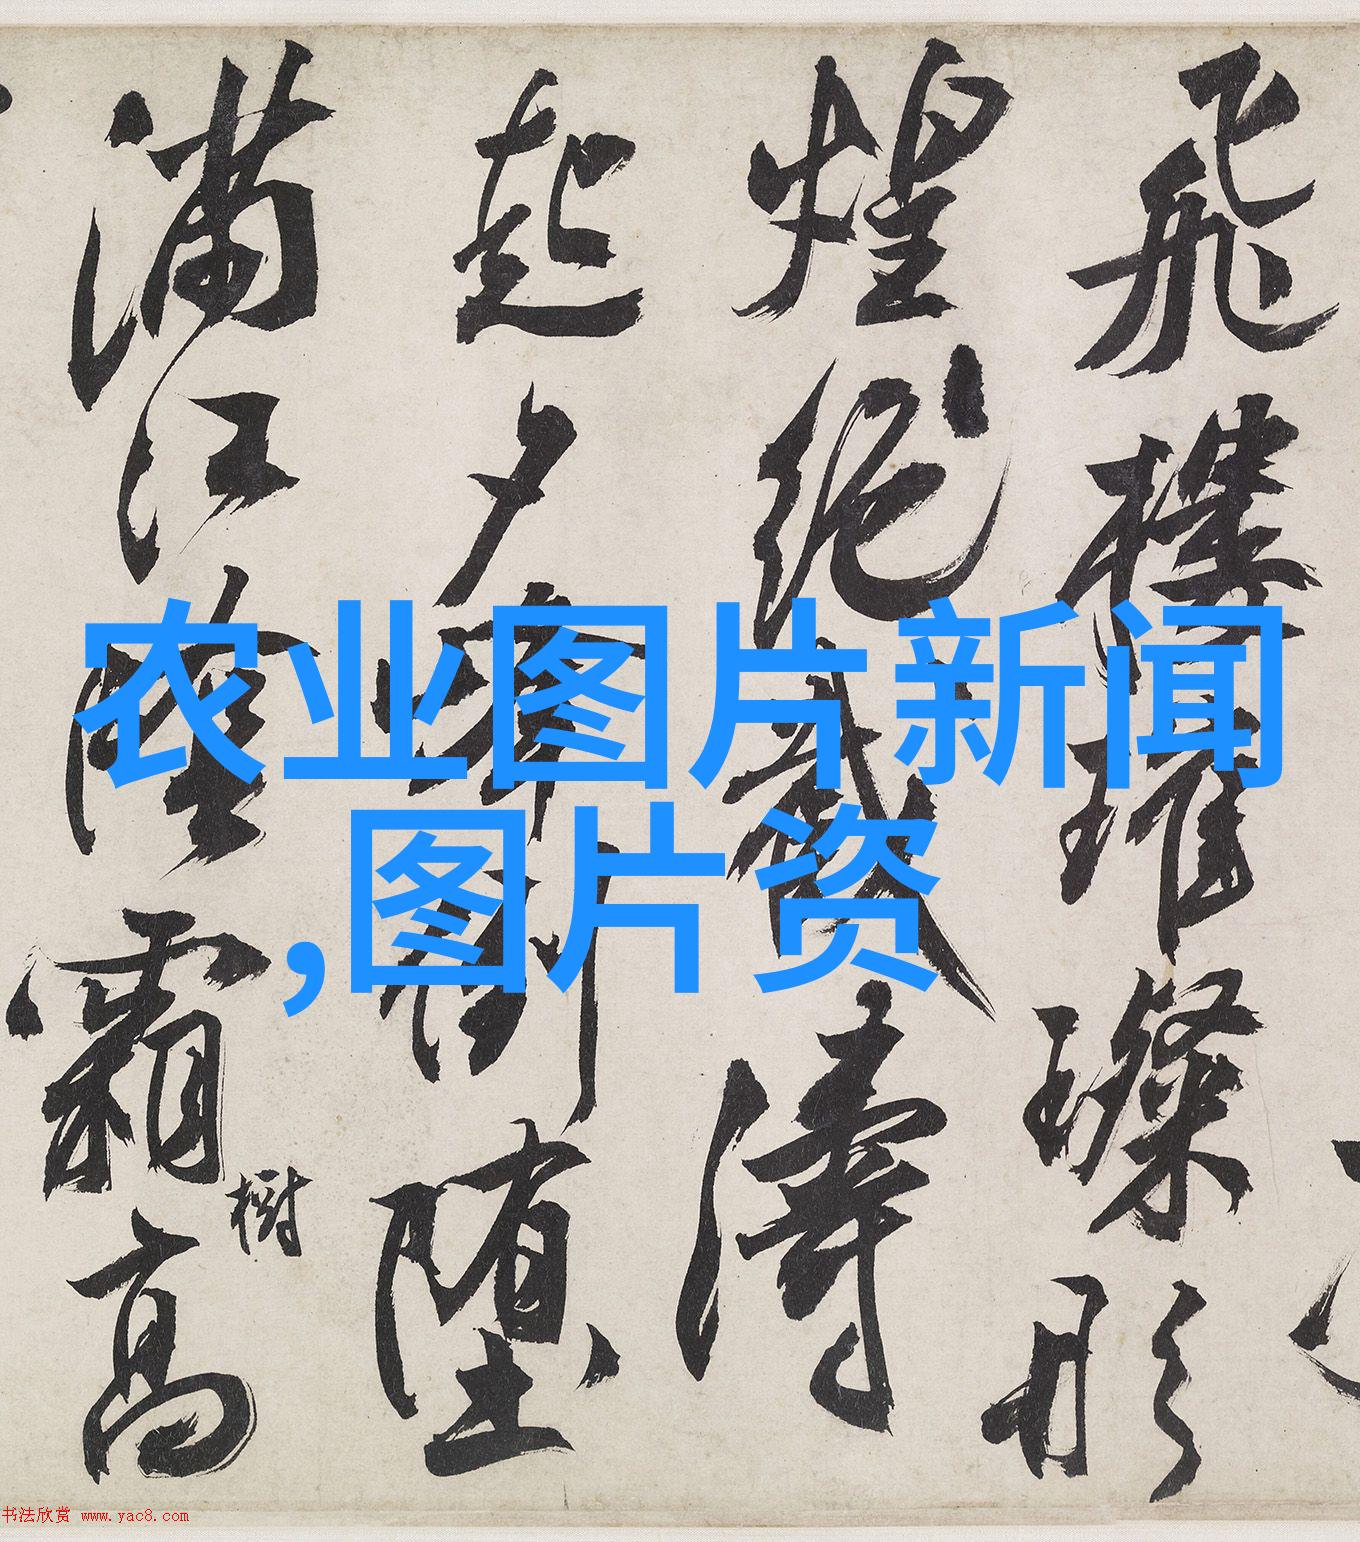 飛樓璀璨彤
煌截濤
起夕倒墮
滿江陰霜高
樹
农业图片新闻
,图片资
书法欣赏 www.yac8.com